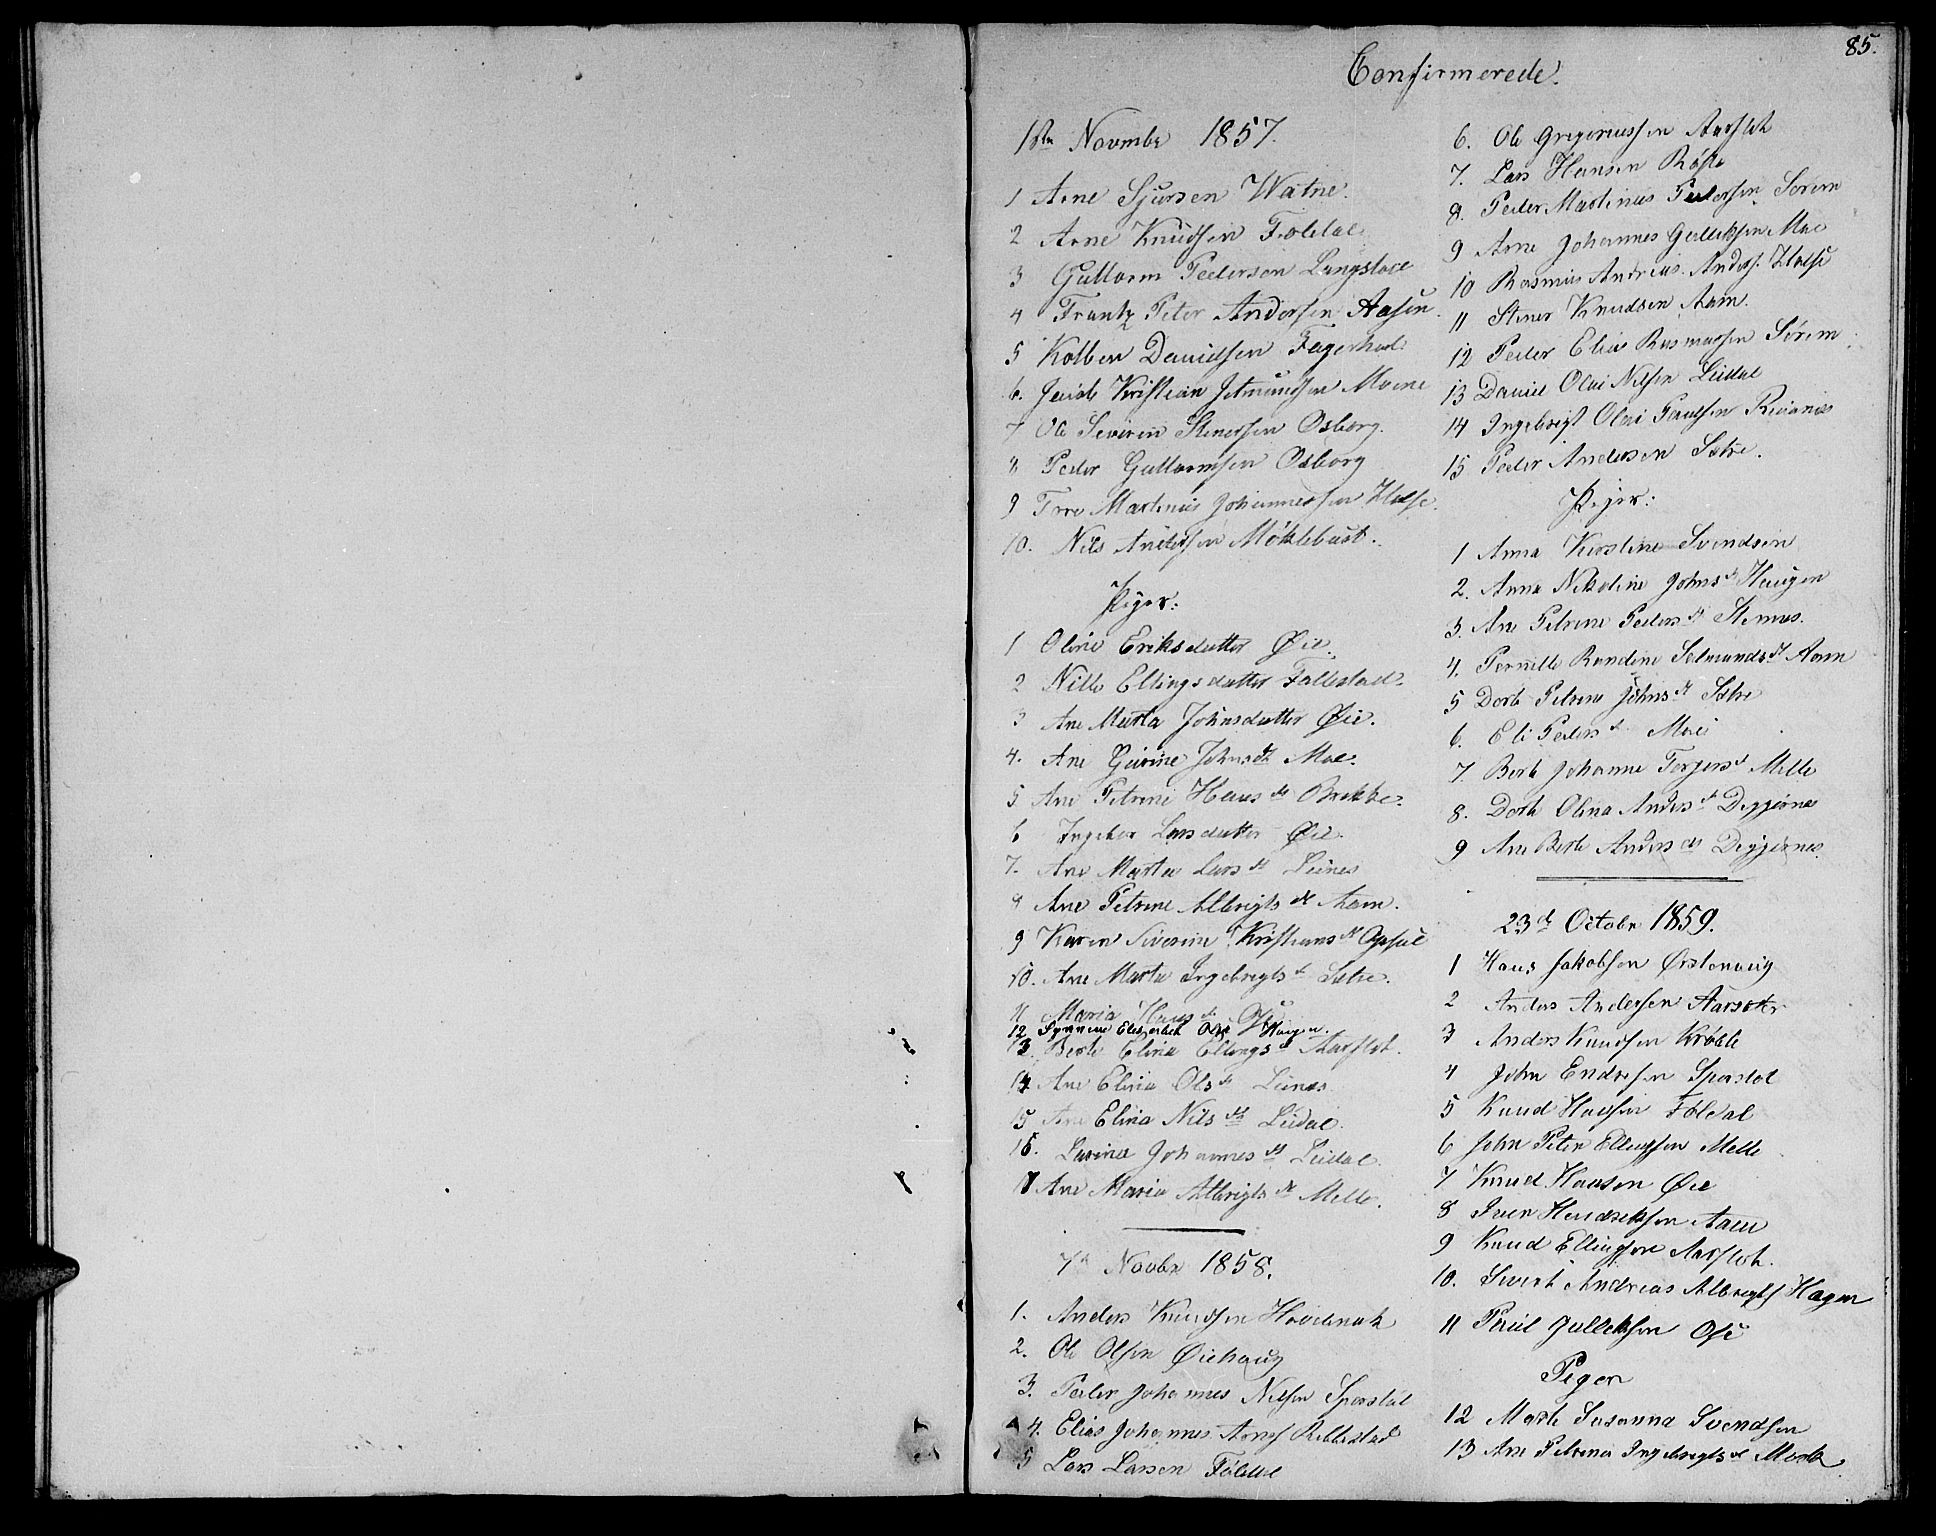 85.
Confirmerede.
1ste Novmbr 1857.
1 Arne Sjursen Watne.
2 Arne Knudsen Foldal
3 Guttorm Pedersen Langstøl
4 Frantz Peter Andersen Aasen.
5 Kolben Davidsen Fagerhol
6. Kristian Moene
7 Ole Severin Stenersen Osborg.
8 Peder Guttormsen Osborg
9 Martinus Johannessen Halse.
10. Nils Andersen Møklebust.
Piger:
1 Oline Eriksdatter Øie.
2 Nille Ellingsdatter Follestad.
3 Ane Marta Johnsdatter Øie.
4. Ane Gurine Johnsdt Moe.
5. Ane Petrine Hans dt Brekke.
6 Ingebor Larsdatter Øie.
7. Ane Marta Lars dt Leines
8 Ane Petrine Albrigts dt Aam.
9 Karen Siverine Kristians dt Opsal
10. Ane Marta Ingebregts dt Sætre.
11 Maria Hans dt Ose
12 Synneve Elisabeth Ols Haugen.
13. Berte Elina Ellings dt Aarflot.
14 Ane Elina Ols dt Leines
15 Ane Elina Nils dt Leidal.
16. Lavina Johannes dt Leidal.
17 Ane Maria Albrigts dt Melle.
7de Novbr 1858.
1. Anders Knudsen Hovdenak
2. Ole Olsen Øiehaug
3. Peder Johannes Nilsen Sporstøl
4. Elias Johannes Arnes Rebbestad
5 Lars Larsen Føldal
6. Ole Gregoriussen Aarflot
7. Lars Hansen Røste
8. Peder Martinus Pedersen Sørem
9 Arne Johannes Gulleksen Moe
10 Rasmus Andreas Anders. Halse
11 Stener Knudsen Aam.
12 Peder Elias Rasmussen Sørem
13 Daniel Olai Nilsen Leidal
14 Ingebrigt Olai Paulsen Reianes
15 Peder Andersen Sætre.
Piger:
1 Anna Kirstine Svendsen
2. Anna Nikoline Johns dt Haugen
3. Ane Petrine Peders dt Stennes.
4. Pernille Randine Selmunds dt Aam
5 Dorte Petrine Johns dt Sætre
6. Eli Peders dt Moe
7. Berte Johanne Torgers dt Melle
8. Dorte Olina Anders dt Digjernes
9 Ane Berte Anders dt Digjernes.
23de Octobr 1859.
1 Hans Jakobsen Ørstenvig
2 Anders Andersen Aarsæter
3 Anders Knudsen Krøvle
4 John Endresen Sporstøl
5 Knud Hansen Føldal
6 John Peter Ellingsen Melle
7 Knud Hansen Øie
8 Iver Hendriksen Aam
9 Knud Ellingsen Aarflot.
10. Sivert Andreas Albregts Hagen
11 Paul Gulleksen Ose
Piger
12 Marte Susanna Svendsen
13 Ane Petrina Ingebregts dt Mork